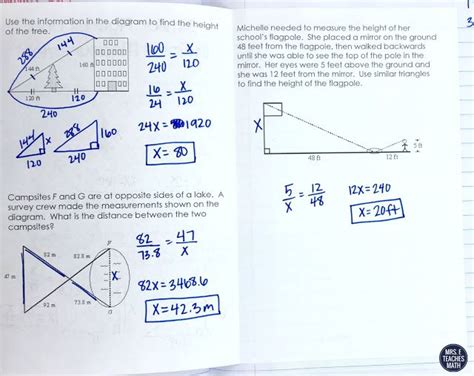 Use the information in the diagram to find the height
of the tree.
288
144
144 ft
160 ft
120 ft
120
120 ft
240
160/240 = x/120
16/24 = x/120
24x = 1920
x = 80
144
x
120
288
160
240
Campsites F and G are at opposite sides of a lake. A
survey crew made the measurements shown on the
diagram. What is the distance between the two
campsites?
92 m
82.8 m
F
47 m
x
92 m
73.8 m
G
82/73.8 = 47/x
82x = 3468.6
x = 42.3 m
Michelle needed to measure the height of her
school's flagpole. She placed a mirror on the ground
48 feet from the flagpole, then walked backwards
until she was able to see the top of the pole in the
mirror. Her eyes were 5 feet above the ground and
she was 12 feet from the mirror. Use similar triangles
to find the height of the flagpole.
x
5 ft
48 ft
12 ft
5/x = 12/48
12x = 240
x = 20ft
MRS. E
TEACHES
MATH